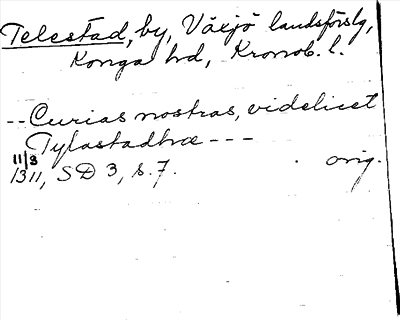 Telestad, by, Växjö landsförslg,
Konga hd, Kronob. l.
-- Curias nostras, videlicet
Tylastadhræ ---
11/8
1311, SD 3, s. 7. orig.